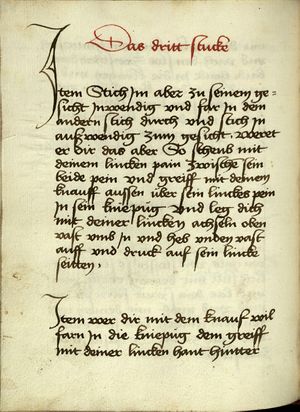 Das dritt stucke
Item Stich Im aber zu seinem ge-
sicht Inwendig vnd far in dem
andern stich durch vnd stich in
auswendig zum gesicht. weret
er dir das aber So schreib mit
deinem lincken pain zwische sein
beide pein vnd greiff mit deinem
knauff aussen über sein linckes pein
in sein kniepüg Vnd leg dich
mit deiner lincken achseln oben
vast vmb in vnd heb vnden vast
auff vnd druck auf sein lincke
seitten.
Item wer dir mit dem knauf wil
farn in die kniepüg dem greiff
mit deiner lincken hant hünter